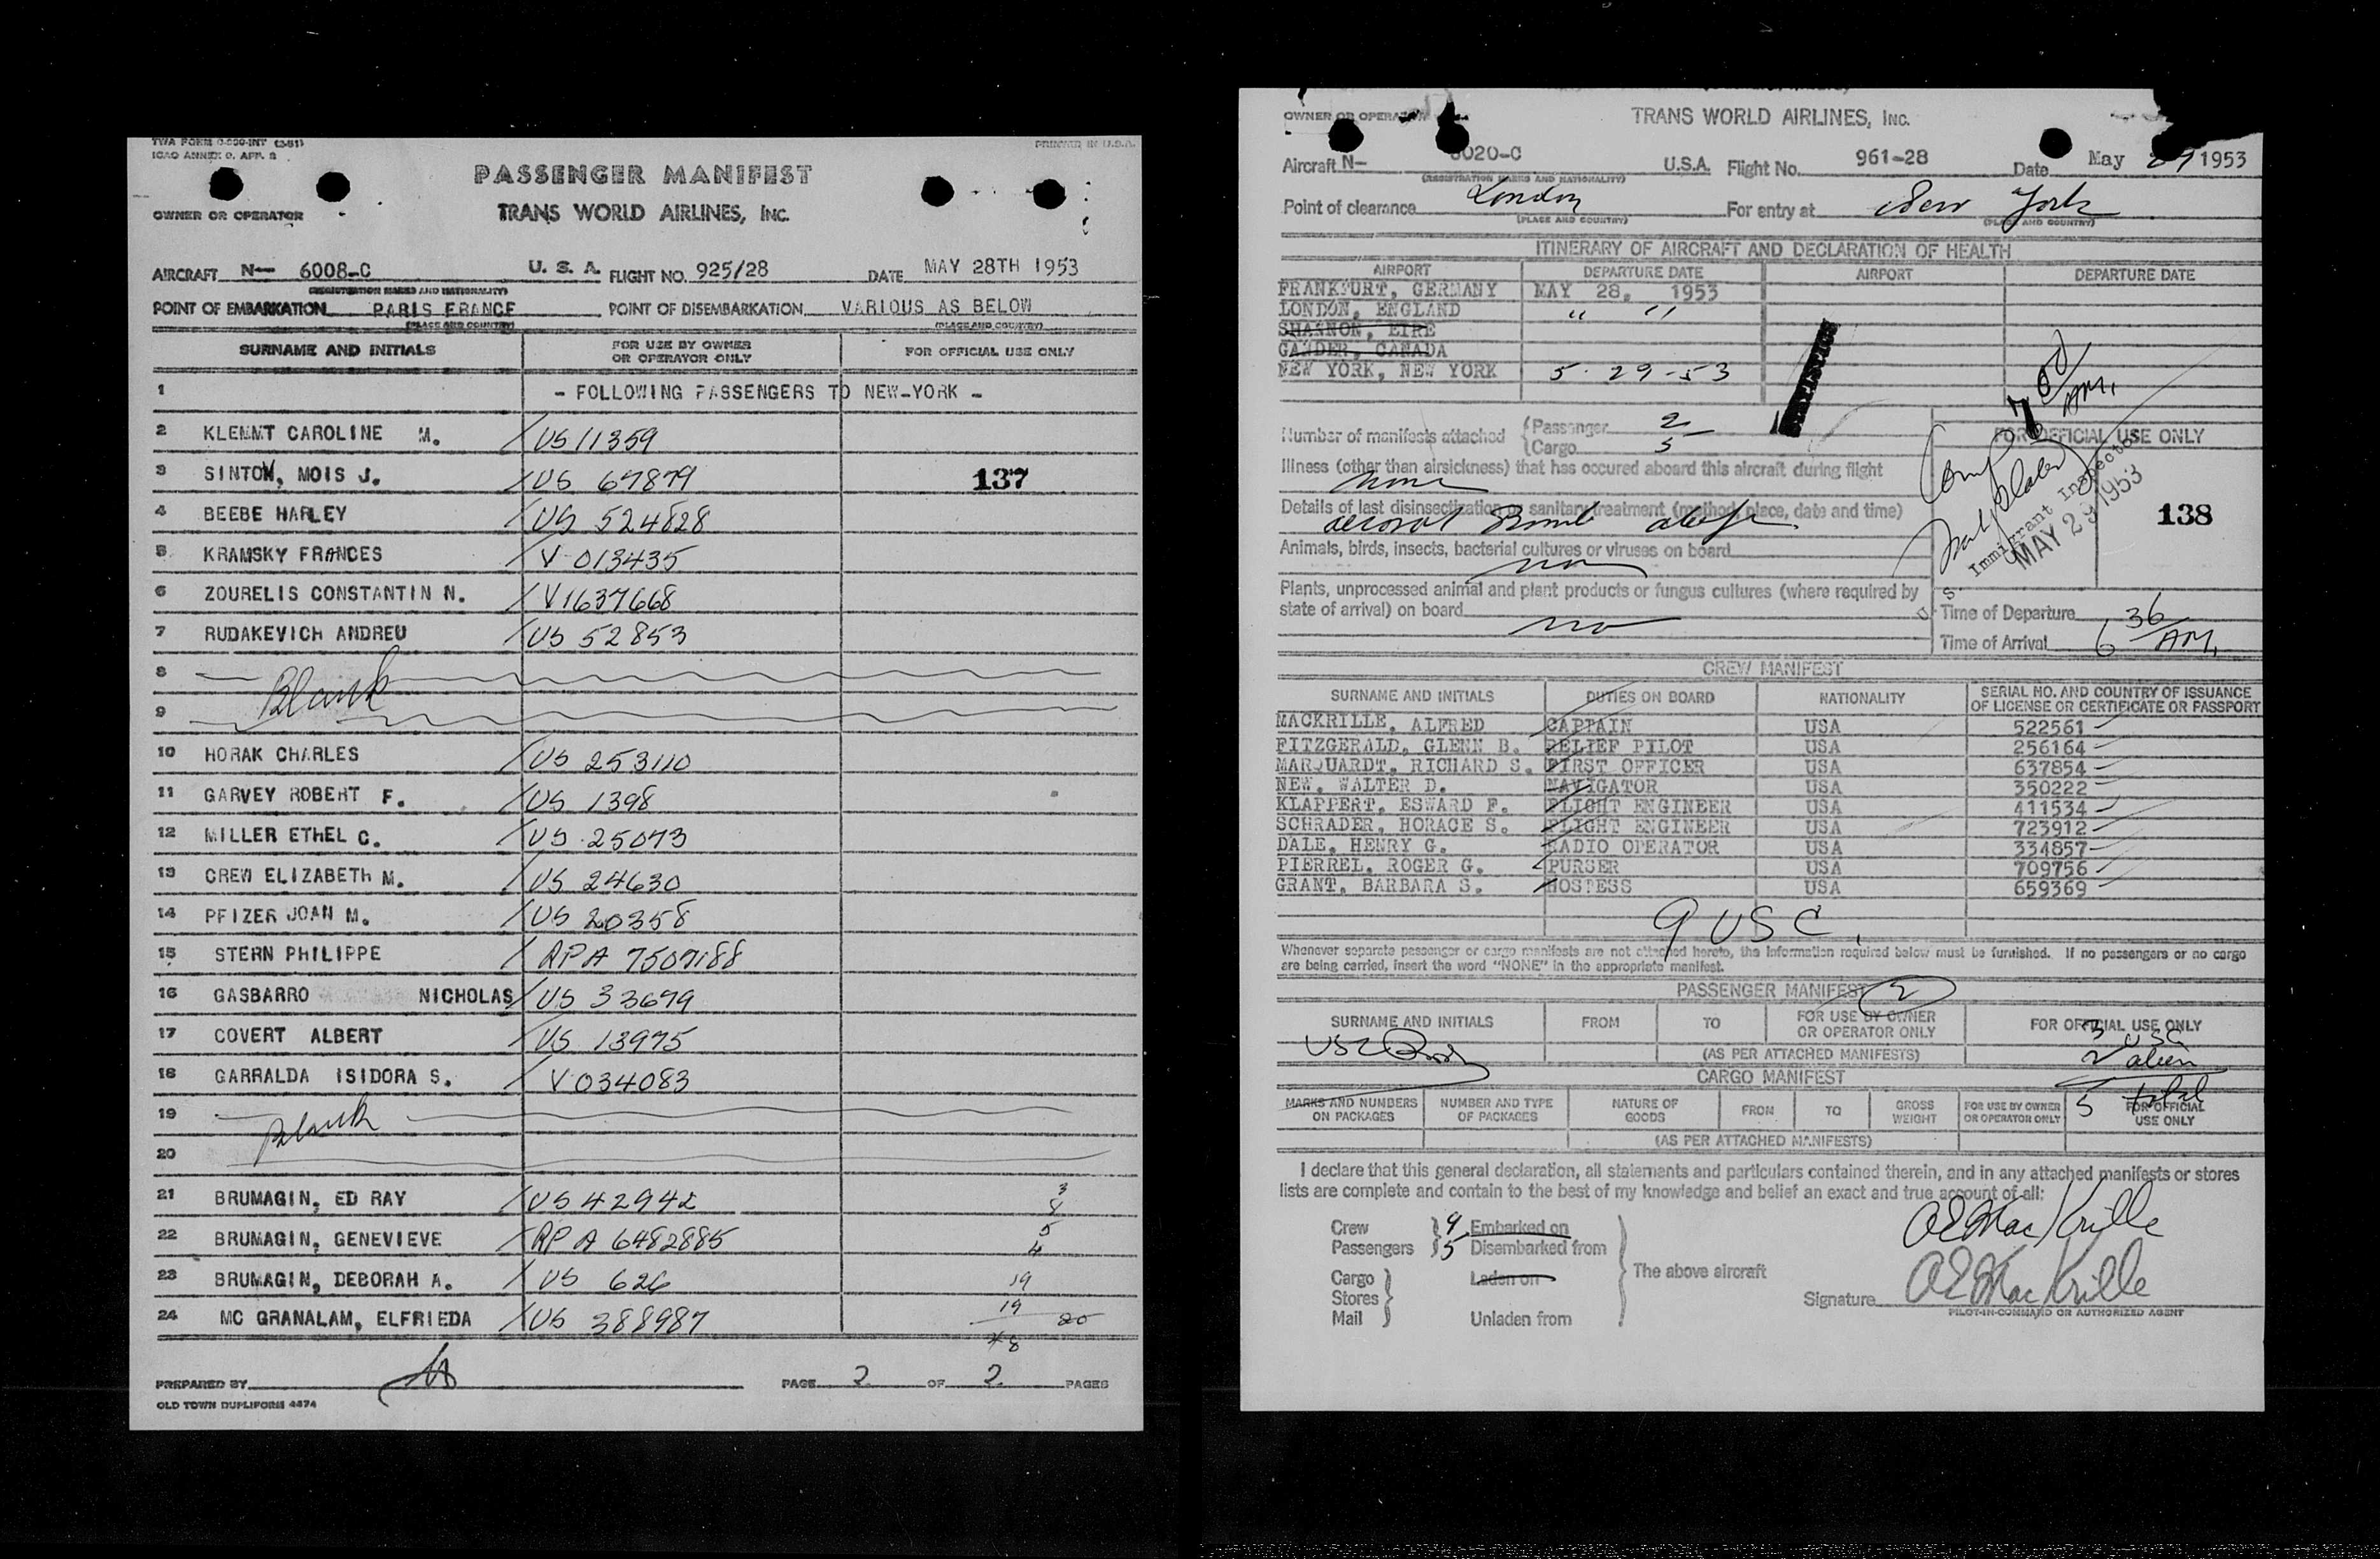 TWA FORM
ICAO ANNEX 9. APP. 2
PRINTED IN U.S.A.
PASSENGER MANIFEST
OWNER OR OPERATOR TRANS WORLD AIRLINES, INC.
AIRCRAFT N— 6008-C U. S. A. FLIGHT NO. 925/28 DATE MAY 28TH 1953
(REGISTRATION MARKS AND NATIONALITY)
POINT OF EMBARKATION PARIS FRANCE POINT OF DISEMBARKATION VARIOUS AS BELOW
(PLACE AND COUNTRY) (PLACE AND COUNTRY)
SURNAME AND INITIALS FOR USE BY OWNER OR OPERATOR ONLY FOR OFFICIAL USE ONLY
1 - FOLLOWING PASSENGERS TO NEW-YORK -
2 KLEMMT CAROLINE M. US 11359
3 SINTON, MOIS J. US 67879 137
4 BEEBE HARLEY US 524828
5 KRAMSKY FRANCES V 013435
6 ZOURELIS CONSTANTIN N. V1637668
7 RUDAKEVICH ANDREU US 52853
8 Blank
9
10 HORAK CHARLES US 253110
11 GARVEY ROBERT F. US 1398
12 MILLER ETHEL C. US 25073
13 CREW ELIZABETH M. US 24630
14 PFIZER JOAN M. US 20358
15 STERN PHILIPPE RP A 7507188
16 GASBARRO NICHOLAS US 33679
17 COVERT ALBERT US 13975
18 GARRALDA ISIDORA S. V 034083
19 Blank
20
21 BRUMAGIN, ED RAY US 42942 3
22 BRUMAGIN, GENEVIEVE RP A 6482885 5
23 BRUMAGIN, DEBORAH A. US 626 19
24 MC GRANALAM, ELFRIEDA US 388987 19 20
PREPARED BY PAGE 2 OF 2 PAGES
OLD TOWN DUPLIFORM 4474
OWNER OR OPERATOR TRANS WORLD AIRLINES, INC.
Aircraft N— 6020-C U.S.A. Flight No. 961-28 Date May 29 1953
(REGISTRATION MARKS AND NATIONALITY)
Point of clearance London For entry at New York
(PLACE AND COUNTRY) (PLACE AND COUNTRY)
ITINERARY OF AIRCRAFT AND DECLARATION OF HEALTH
AIRPORT DEPARTURE DATE AIRPORT DEPARTURE DATE
FRANKFURT, GERMANY MAY 28, 1953
LONDON, ENGLAND " "
SHANNON, EIRE
GANDER, CANADA
NEW YORK, NEW YORK 5-29-53
7 00 AM.
Number of manifests attached Passenger 2
Cargo 5
FOR OFFICIAL USE ONLY
Illness (other than airsickness) that has occured aboard this aircraft during flight
none
Details of last disinsectization or sanitary treatment (method, place, date and time)
aerosol Bomb
U. S. Immigrant Inspector
MAY 29 1953
138
Animals, birds, insects, bacterial cultures or viruses on board
no
Plants, unprocessed animal and plant products or fungus cultures (where required by
state of arrival) on board
no
Time of Departure
Time of Arrival 6 36 AM.
CREW MANIFEST
SURNAME AND INITIALS DUTIES ON BOARD NATIONALITY SERIAL NO. AND COUNTRY OF ISSUANCE OF LICENSE OR CERTIFICATE OR PASSPORT
MACKRILLE, ALFRED CAPTAIN USA 522561
FITZGERALD, GLENN B. RELIEF PILOT USA 256164
MARQUARDT, RICHARD S. FIRST OFFICER USA 637854
NEW, WALTER D. NAVIGATOR USA 350222
KLAPPERT, ESWARD F. FLIGHT ENGINEER USA 411534
SCHRADER, HORACE S. FLIGHT ENGINEER USA 723912
DALE, HENRY G. RADIO OPERATOR USA 334857
PIERREL, ROGER G. PURSER USA 709756
GRANT, BARBARA S. HOSTESS USA 659369
9 USC.
Whenever separate passenger or cargo manifests are not attached hereto, the information required below must be furnished. If no passengers or no cargo
are being carried, insert the word "NONE" in the appropriate manifest.
PASSENGER MANIFEST 2
SURNAME AND INITIALS FROM TO FOR USE BY OWNER OR OPERATOR ONLY FOR OFFICIAL USE ONLY
3 USC
2 alien
(AS PER ATTACHED MANIFESTS)
CARGO MANIFEST
5 total
MARKS AND NUMBERS ON PACKAGES NUMBER AND TYPE OF PACKAGES NATURE OF GOODS FROM TO GROSS WEIGHT FOR USE BY OWNER OR OPERATOR ONLY FOR OFFICIAL USE ONLY
(AS PER ATTACHED MANIFESTS)
I declare that this general declaration, all statements and particulars contained therein, and in any attached manifests or stores
lists are complete and contain to the best of my knowledge and belief an exact and true account of all:
Crew 9 Embarked on
Passengers 5 Disembarked from
Cargo Laden on The above aircraft
Stores
Mail Unladen from
AE MacKrille
Signature AE MacKrille
PILOT-IN-COMMAND OR AUTHORIZED AGENT